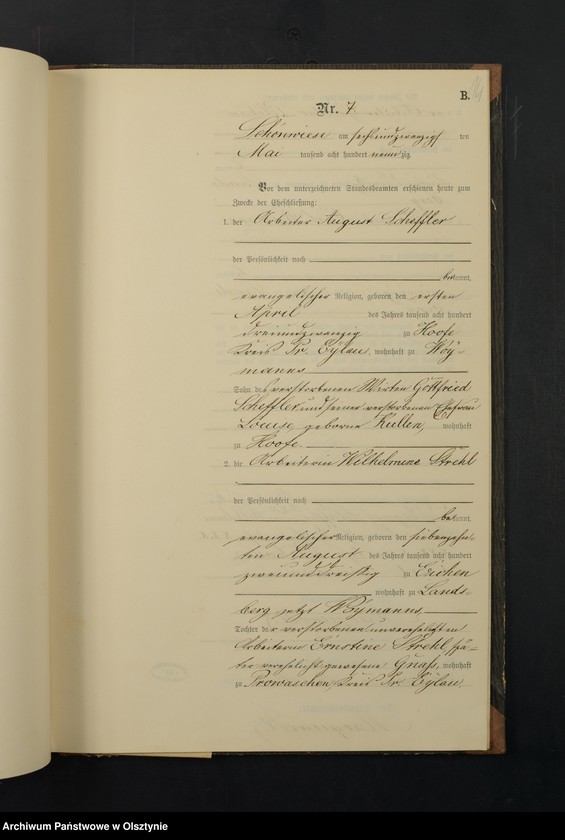 B.
Nr. 7.
Schönwiese am sechsundzwanzigsten
Mai tausend acht hundert neunzig.
Vor dem unterzeichneten Standesbeamten erschienen heute zum
Zwecke der Eheschließung:
1. der Arbeiter August Scheffler
der Persönlichkeit nach
bekannt,
evangelischer Religion, geboren den ersten
April des Jahres tausend acht hundert
dreiundzwanzig zu Hoofe
Kreis Pr. Eylau, wohnhaft zu Woy-
manns
Sohn des verstorbenen Wirten Gottfried
Scheffler und seiner verstorbenen Ehefrau
Louise geborne Kullen, wohnhaft
zu Hoofe.
2. die Arbeiterin Wilhelmine Strehl
der Persönlichkeit nach
bekannt,
evangelischer Religion, geboren den siebenzehn-
ten August des Jahres tausend acht hundert
zweiunddreißig zu Eichen
wohnhaft zu Lands-
berg jetzt Woymanns
Tochter der verstorbenen unverehelichten
Arbeiterin Ernstine Strehl, spä-
ter verehelicht gewesene wohnhaft
zu Prowaschen, Kreis Pr. Eylau.
Archiwum Państwowe w Olsztynie